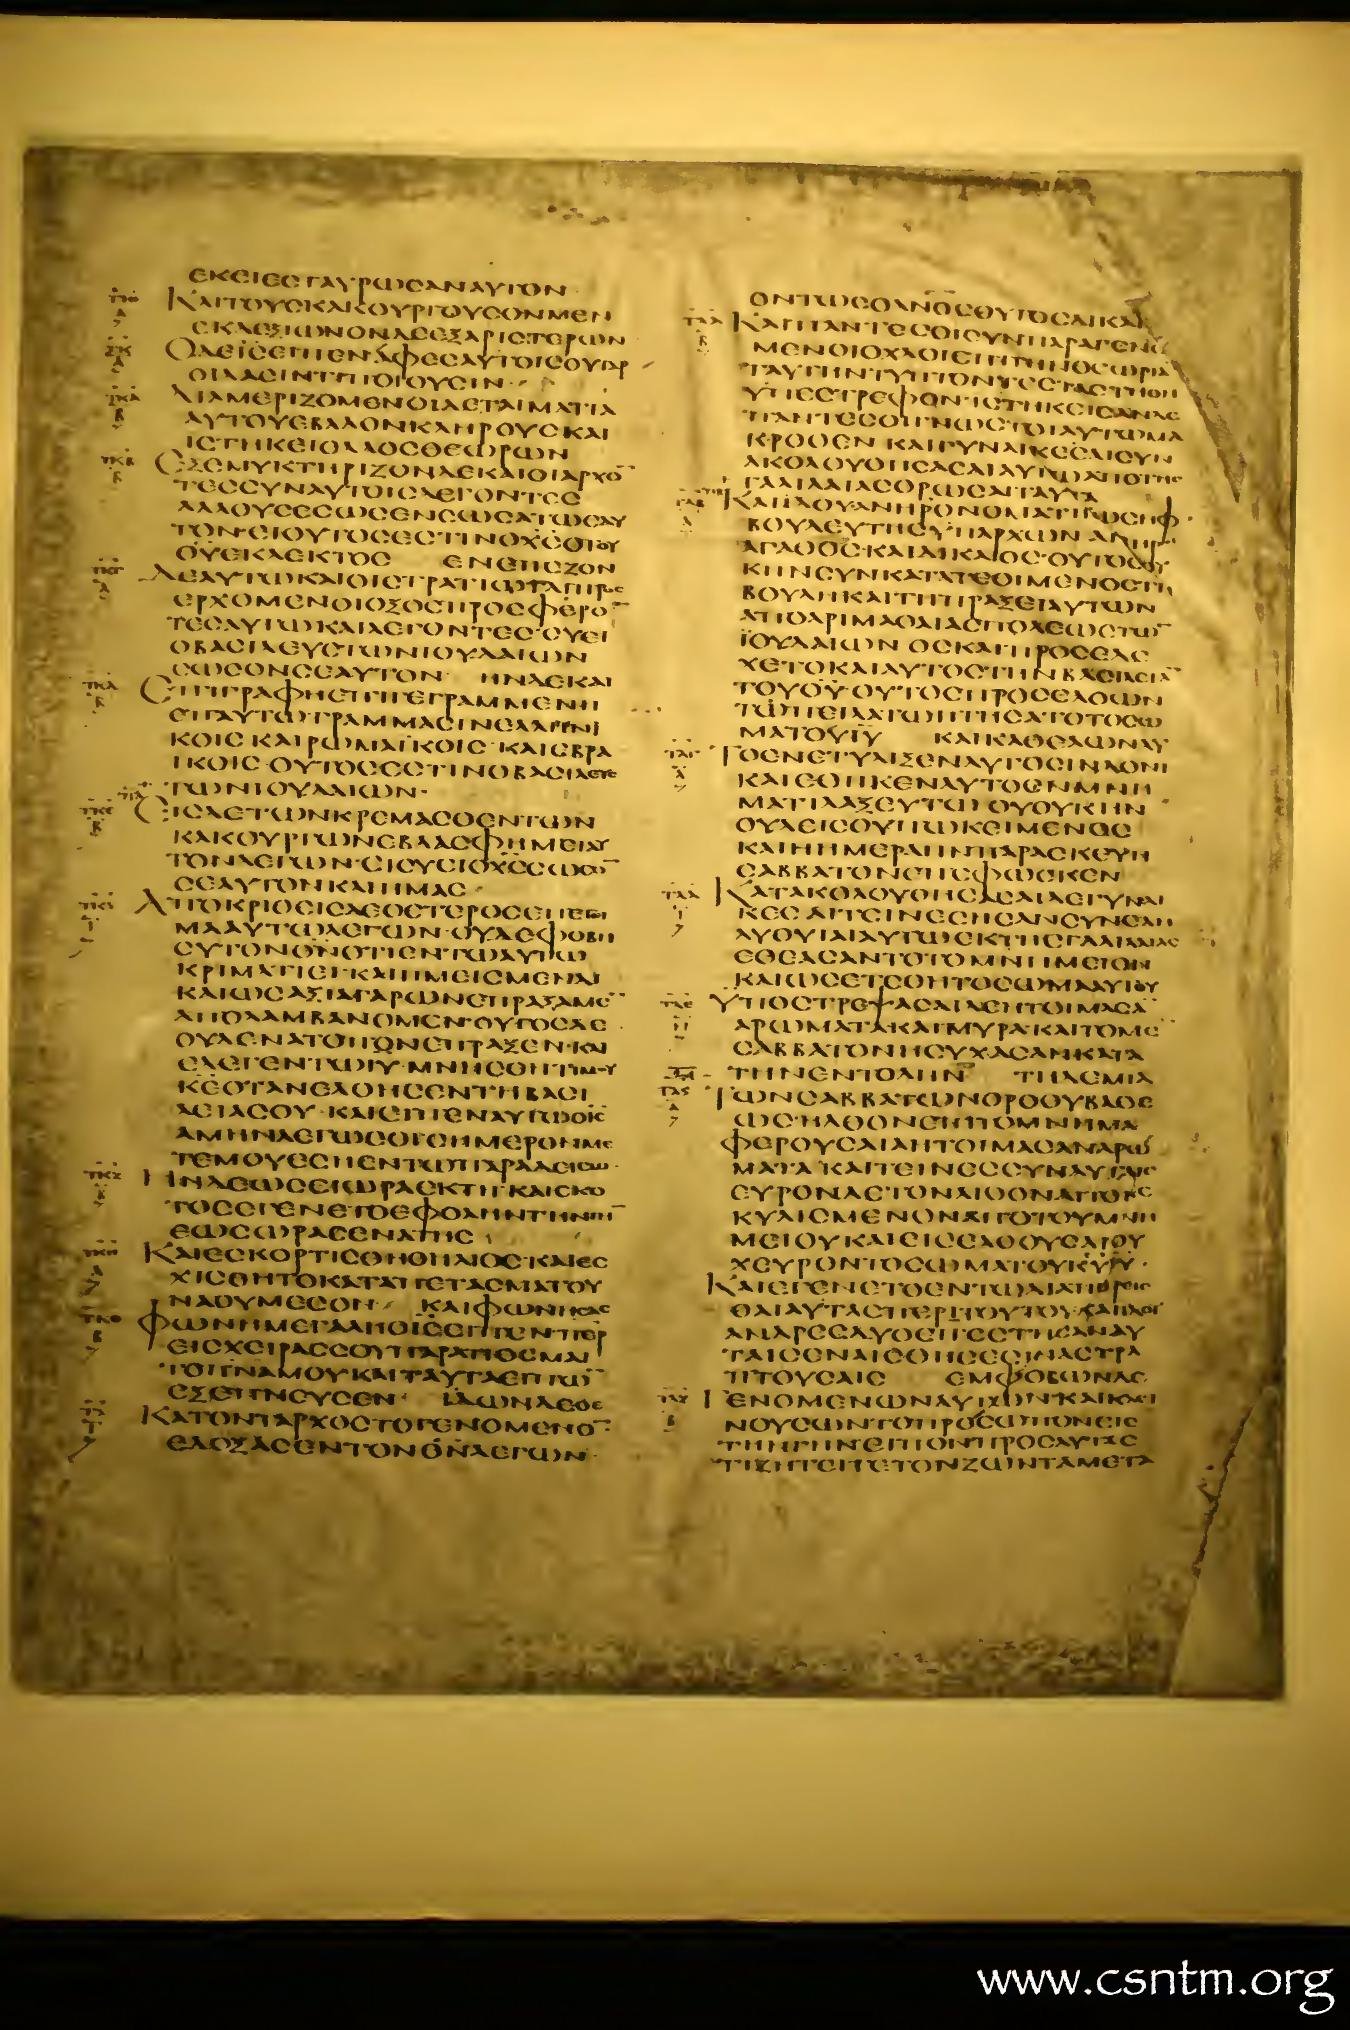 ΕΚΕΙΕϹΤΑΥΡΩϹΑΝΑΥΤΟΝ
ΚΑΙΤΟΥϹΚΑΚΟΥΡΓΟΥϹΟΝΜΕΝ
ΕΚΔΕΞΙΩΝΟΝΔΕΕΞΑΡΙϹΤΕΡΩΝ
ΟΔΕΙϹΕΙΠΕΝ ΑΦΕϹΑΥΤΟΙϹΟΥΓΑΡ
ΟΙΔΑϹΙΝΤΙΠΟΙΟΥϹΙΝ
ΔΙΑΜΕΡΙΖΟΜΕΝΟΙΔΕΤΑΙΜΑΤΙΑ
ΑΥΤΟΥΕΒΑΛΟΝΚΛΗΡΟΥϹΚΑΙ
ΙϹΤΗΚΕΙΟΛΑΟϹΘΕΩΡΩΝ
ΕΞΕΜΥΚΤΗΡΙΖΟΝΔΕΚΑΙΟΙΑΡΧΟ̅
ΤΕϹϹΥΝΑΥΤΟΙϹΛΕΓΟΝΤΕϹ
ΑΛΛΟΥϹΕϹΩϹΕΝϹΩϹΑΤΩΕΑΥ
ΤΟΝ·ΕΙΟΥΤΟϹΕϹΤΙΝΟΧϹΟΤΟΥ
ΘΥΕΚΛΕΚΤΟϹ ΕΝΕΠΕΖΟΝ
ΔΕΑΥΤΩΚΑΙΟΙϹΤΡΑΤΙΩΤΑΙΠΡΟϹ
ΕΡΧΟΜΕΝΟΙΟΞΟϹΠΡΟϹΦΕΡΟ̅
ΤΕϹΑΥΤΩΚΑΙΛΕΓΟΝΤΕϹ·ΕΙϹΥΕΙ
ΟΒΑϹΙΛΕΥϹΤΩΝΙΟΥΔΑΙΩΝ
ϹΩϹΟΝϹΕΑΥΤΟΝ ΗΝΔΕΚΑΙ
ΕΠΙΓΡΑΦΗΕΠΙΓΕΓΡΑΜΜΕΝΗ
ΕΠΑΥΤΩΓΡΑΜΜΑϹΙΝΕΛΛΗΝΙ
ΚΟΙϹ ΚΑΙΡΩΜΑΪΚΟΙϹ·ΚΑΙΕΒΡΑ
ΙΚΟΙϹ·ΟΥΤΟϹΕϹΤΙΝΟΒΑϹΙΛΕΥϹ
ΤΩΝΙΟΥΔΑΙΩΝ·
ΕΙϹΔΕΤΩΝΚΡΕΜΑϹΘΕΝΤΩΝ
ΚΑΚΟΥΡΓΩΝΕΒΛΑϹΦΗΜΕΙΑΥ
ΤΟΝΛΕΓΩΝ·ΕΙϹΥΕΙΟΧϹϹΩϹΟ̅
ϹΕΑΥΤΟΝΚΑΙΗΜΑϹ
ΑΠΟΚΡΙΘΕΙϹΔΕΟΕΤΕΡΟϹΕΠΕΤΙ
ΜΑΑΥΤΩΛΕΓΩΝ·ΟΥΔΕΦΟΒΗ
ϹΥΤΟΝΘΝΟΤΙΕΝΤΩΑΥΤΩ
ΚΡΙΜΑΤΙΕΙ·ΚΑΙΗΜΕΙϹΜΕΝΔΙ
ΚΑΙΩϹΑΞΙΑΓΑΡΩΝΕΠΡΑΞΑΜΕ̅
ΑΠΟΛΑΜΒΑΝΟΜΕΝ·ΟΥΤΟϹΔΕ
ΟΥΔΕΝΑΤΟΠΟΝΕΠΡΑΞΕΝ·ΚΑΙ
ΕΛΕΓΕΝΤΩΙΥ·ΜΝΗϹΘΗΤΙΜΟΥ
ΚΕΟΤΑΝΕΛΘΗϹΕΝΤΗΒΑϹΙ
ΛΕΙΑϹΟΥ·ΚΑΙΕΙΠΕΝΑΥΤΩΟΙϹ
ΑΜΗΝΛΕΓΩϹΟΙϹΗΜΕΡΟΝΜΕ
ΤΕΜΟΥΕϹΗΕΝΤΩΠΑΡΑΔΕΙϹΩ·
ΗΝΔΕΩϹΕΙΩΡΑΕΚΤΗ·ΚΑΙϹΚΟ
ΤΟϹΕΓΕΝΕΤΟΕΦΟΛΗΝΤΗΝΓΗ̅
ΕΩϹΩΡΑϹΕΝΑΤΗϹ
ΚΑΙΕϹΚΟΤΙϹΘΗΟΗΛΙΟϹ·ΚΑΙΕϹ
ΧΙϹΘΗΤΟΚΑΤΑΠΕΤΑϹΜΑΤΟΥ
ΝΑΟΥΜΕϹΟΝ· ΚΑΙΦΩΝΗϹΑϹ
ΦΩΝΗΜΕΓΑΛΗΟΙϹΕΙΠΕΝΠΕΡ
ΕΙϹΧΕΙΡΑϹϹΟΥΠΑΡΑΤΙΘΕΜΑΙ
ΤΟΠΝΑΜΟΥΚΑΙΤΑΥΤΑΕΙΠΩ̅
ΕΞΕΠΝΕΥϹΕΝ· ΙΔΩΝΔΕΟΕ
ΚΑΤΟΝΤΑΡΧΟϹΤΟΓΕΝΟΜΕΝΟ̅
ΕΔΟΞΑϹΕΝΤΟΝΘΝΛΕΓΩΝ·
ΟΝΤΩϹΟΑΝΟϹΟΥΤΟϹΔΙΚΑΙ
ΚΑΙΠΑΝΤΕϹΟΙϹΥΝΠΑΡΑΓΕΝΟ
ΜΕΝΟΙΟΧΛΟΙΕΠΙΤΗΝΘΕΩΡΙΑ
ΤΑΥΤΗΝ
ΥΠΕϹΤΡΕΦΟΝ·ΙϹΤΗΚΕΙϹΑΝΔΕ
ΠΑΝΤΕϹΟΙΓΝΩϹΤΟΙΑΥΤΩΜΑ
ΚΡΟΘΕΝ ΚΑΙΓΥΝΑΙΚΕϹΑΙϹΥΝ
ΑΚΟΛΟΥΘΗϹΑϹΑΙΑΥΤΩΑΠΟΤΗϹ
ΓΑΛΙΛΑΙΑϹΟΡΩϹΑΙΤΑΥΤΑ
ΚΑΙΙΔΟΥΑΝΗΡΟΝΟΜΑΤΙΙΩϹΗΦ·
ΒΟΥΛΕΥΤΗϹΫΠΑΡΧΩΝ ΑΝΗΡ
ΑΓΑΘΟϹ·ΚΑΙΔΙΚΑΙΟϹ·ΟΥΤΟϹΟΥ
ΚΗΝϹΥΝΚΑΤΑΤΕΘΙΜΕΝΟϹΤΗ
ΒΟΥΛΗΚΑΙΤΗΠΡΑΞΕΙΑΥΤΩΝ
ΑΠΟΑΡΙΜΑΘΑΙΑϹΠΟΛΕΩϹΤΩ̅
ΪΟΥΔΑΙΩΝ ΟϹΚΑΙΠΡΟϹΕΔΕ
ΧΕΤΟΚΑΙΑΥΤΟϹΤΗΝΒΑϹΙΛΕΙΑ̅
ΤΟΥΘΥ·ΟΥΤΟϹΠΡΟϹΕΛΘΩΝ
ΤΩΠΕΙΛΑΤΩΗΤΗϹΑΤΟΤΟϹΩ
ΜΑΤΟΥΙΥ ΚΑΙΚΑΘΕΛΩΝΑΥ
ΤΟΕΝΕΤΥΛΙΞΕΝΑΥΤΟϹΙΝΔΟΝΙ
ΚΑΙΕΘΗΚΕΝΑΥΤΟΕΝΜΝΗ
ΜΑΤΙΛΑΞΕΥΤΩ ΟΥΟΥΚΗΝ
ΟΥΔΕΙϹΟΥΠΩΚΕΙΜΕΝΟϹ
ΚΑΙΗΜΕΡΑΗΝΠΑΡΑϹΚΕΥΗ
ϹΑΒΒΑΤΟΝΕΠΕΦΩϹΚΕΝ
ΚΑΤΑΚΟΛΟΥΘΗϹΑϹΑΙΔΕΓΥΝΑΙ
ΚΕϹ ΑΙΤΕΙΝΕϹΗϹΑΝϹΥΝΕΛΗ
ΛΥΘΥΙΑΙΑΥΤΩΕΚΤΗϹΓΑΛΙΛΑΙΑϹ
ΕΘΕΑϹΑΝΤΟΤΟΜΝΗΜΕΙΟΝ
ΚΑΙΩϹΕΤΕΘΗΤΟϹΩΜΑΑΥΤΟΥ
ΥΠΟϹΤΡΕΨΑϹΑΙΔΕΗΤΟΙΜΑϹΑ̅
ΑΡΩΜΑΤΑΚΑΙΜΥΡΑΚΑΙΤΟΜΕ̅
ϹΑΒΒΑΤΟΝΗϹΥΧΑϹΑΝΚΑΤΑ
ΤΗΝΕΝΤΟΛΗΝ ΤΗΔΕΜΙΑ
ΤΩΝϹΑΒΒΑΤΩΝΟΡΘΟΥΒΑΘΕ
ΩϹ·ΗΛΘΟΝΕΠΙΤΟΜΝΗΜΑ
ΦΕΡΟΥϹΑΙΑΗΤΟΙΜΑϹΑΝΑΡΩ
ΜΑΤΑ ΚΑΙΤΕΙΝΕϹϹΥΝΑΥΤΑΙϹ
ΕΥΡΟΝΔΕΤΟΝΛΙΘΟΝΑΠΟΚΕ
ΚΥΛΙϹΜΕΝΟΝΑΠΟΤΟΥΜΝΗ
ΜΕΙΟΥΚΑΙΕΙϹΕΛΘΟΥϹΑΙΟΥ
ΧΕΥΡΟΝΤΟϹΩΜΑΤΟΥΚΥΙΥ·
ΚΑΙΕΓΕΝΕΤΟΕΝΤΩΔΙΑΠΟΡΕΙϹ
ΘΑΙΑΥΤΑϹΠΕΡΙΤΟΥΤΟΥ·ΚΑΙΙΔΟΥ
ΑΝΔΡΕϹΔΥΟΕΠΕϹΤΗϹΑΝΑΥ
ΤΑΙϹΕΝΑΙϹΘΗϹΕϹΙΝΑϹΤΡΑ
ΠΤΟΥϹΑΙϹ ΕΜΦΟΒΩΝΔΕ
ΓΕΝΟΜΕΝΩΝΑΥΤΩΝ·ΚΑΙΚΛΙ
ΝΟΥϹΩΝΤΟΠΡΟϹΩΠΟΝΕΙϹ
ΤΗΝΓΗΝΕΙΠΟΝΠΡΟϹΑΥΤΑϹ
ΤΙΖΗΤΕΙΤΕΤΟΝΖΩΝΤΑΜΕΤΑ
www.csntm.org